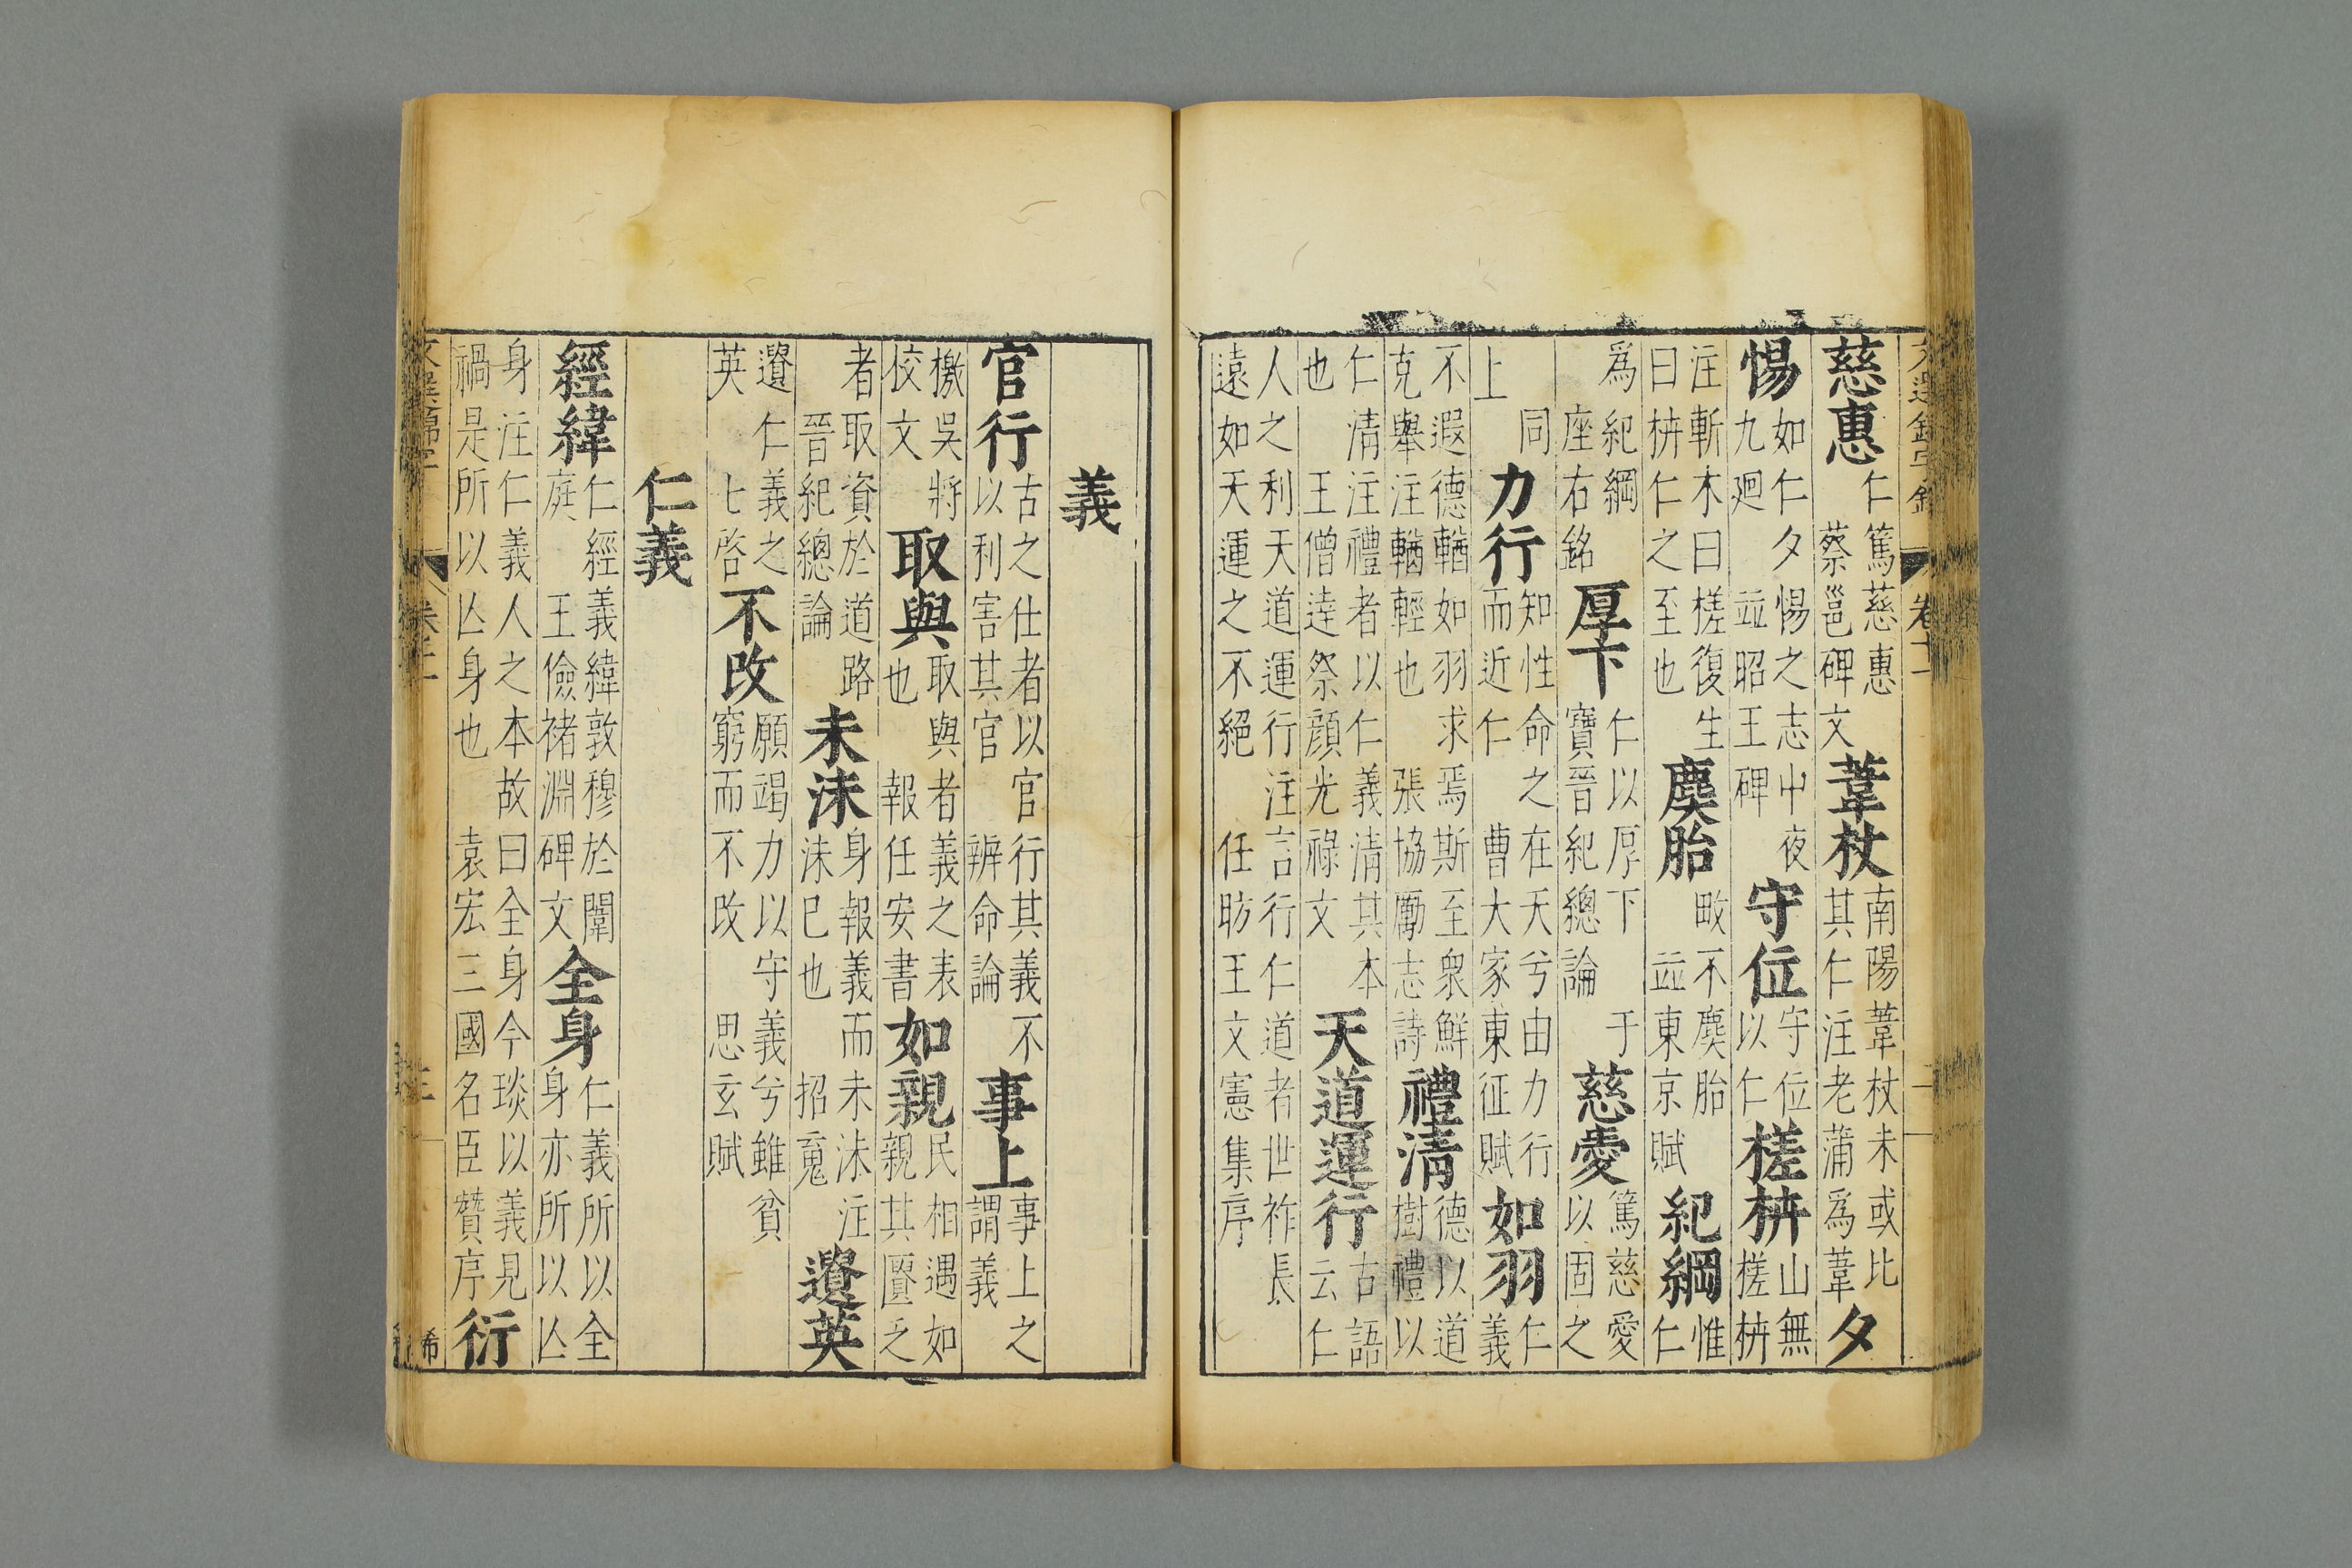 文選錦字錄 卷十一
慈惠仁篤慈惠蔡邕碑文葦杖南陽葦杖未或比其仁注老蒲爲葦夕
惕如仁夕惕之志中夜九廻並昭王碑守位守位以仁槎枿山無槎枿
注斬木曰槎復生曰枿仁之至也麌胎畋不麌胎並東京賦紀綱惟仁
爲紀綱座右銘厚下仁以厚下于寶晉紀總論慈愛篤慈愛以固之
同上力行知性命之在天兮由力行而近仁曹大家東征賦如羽仁義
不遐德輶如羽求焉斯至衆鮮克舉注輶輕也張協勵志詩禮清德以道樹禮以
仁清注禮者以仁義清其本也王僧達祭顔光祿文天道運行古語云仁
人之利天道運行注言行仁道者世祚長遠如天運之不絕任昉王文憲集序
義
官行古之仕者以官行其義不以利害其官辨命論事上事上之謂義
檄吳將校文取與取與者義之表也報任安書如親民相遇如親其匱乏
者取資於道路晉紀總論未沬身報義而未沬注沬已也招䰟遺英
遺仁義之英七啓不改願竭力以守義兮雖貧窮而不改思玄賦
仁義
經緯仁經義緯敦穆於闈庭王儉褚淵碑文全身仁義所以全身亦所以亾
身注仁義人之本故曰全身今琰以義見禍是所以亾身也袁宏三國名臣贊序衍